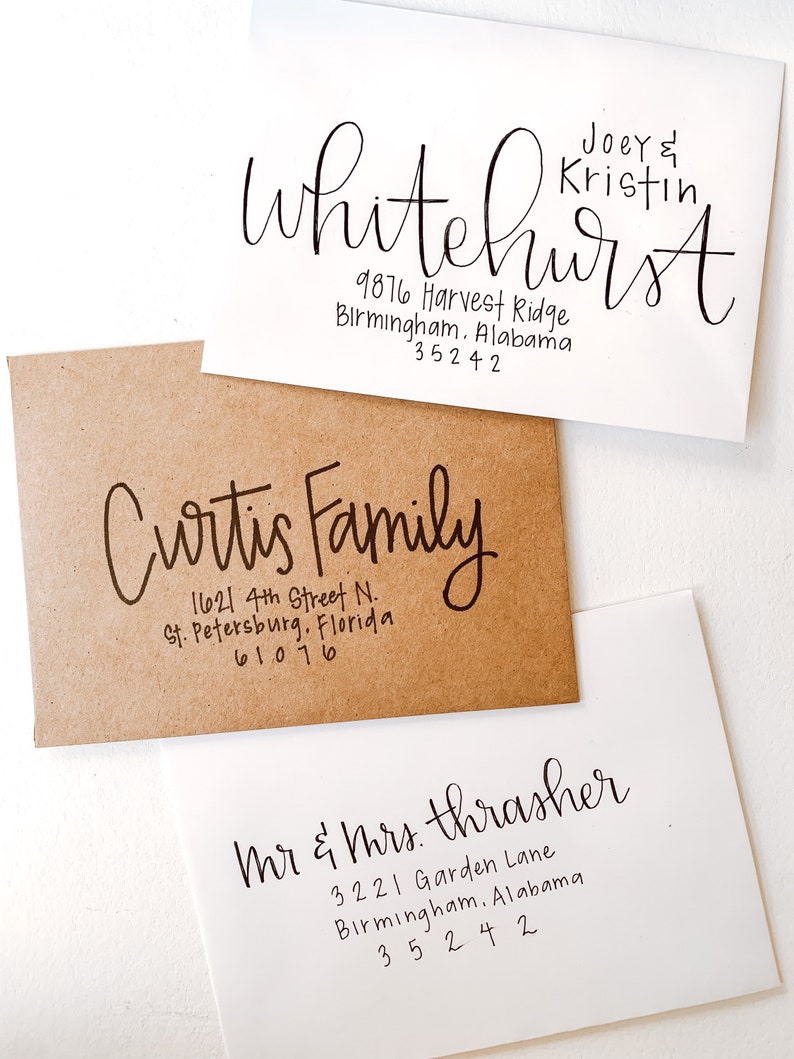 Joey &
Kristin
Whitehurst
9876 Harvest Ridge
Birmingham, Alabama
35242
Curtis Family
1621 4th Street N.
St. Petersburg, Florida
61076
Mr & Mrs. thrasher
3221 Garden Lane
Birmingham, Alabama
35242